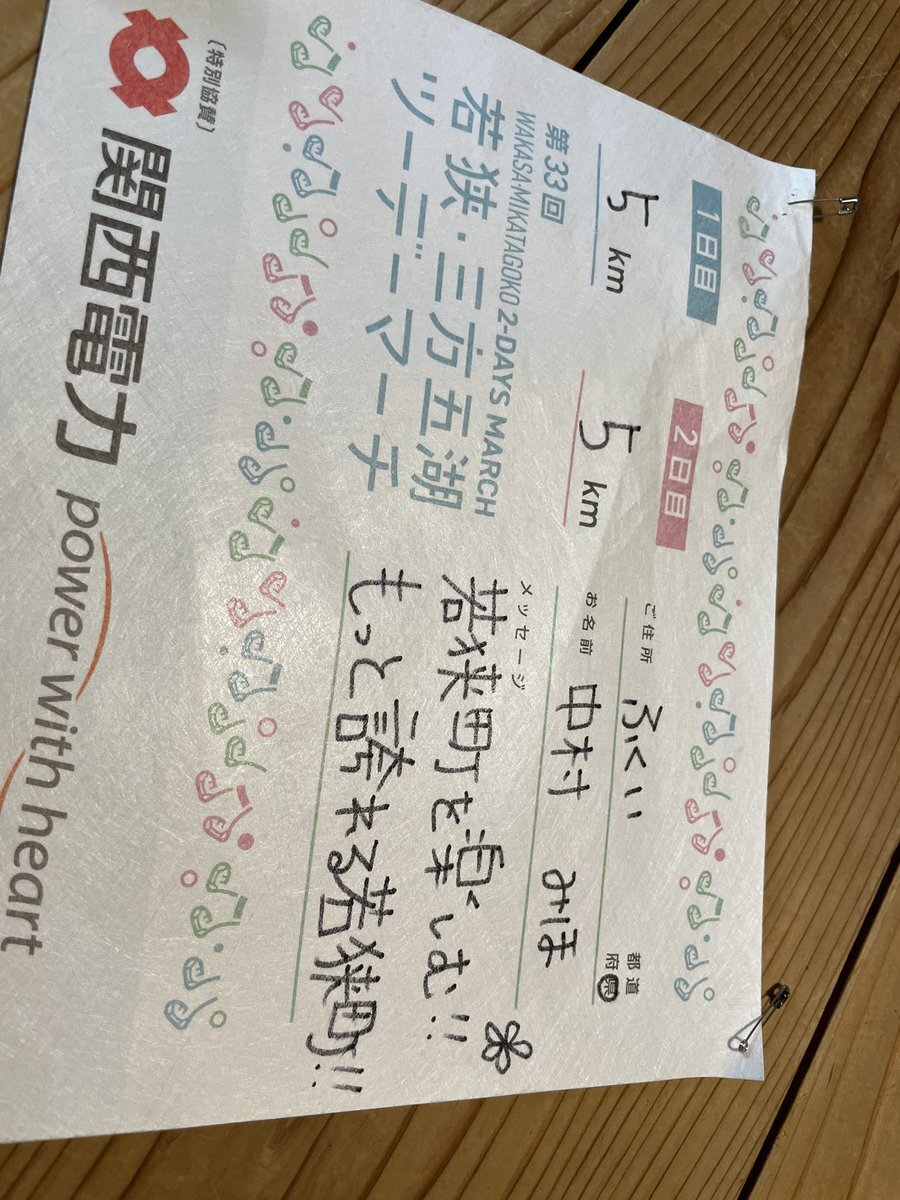 1日目
5 km
2日目
5 km
ご住所 ふくい 都道府県
お名前 中村 みほ
第33回
WAKASA-MIKATAGOKO 2-DAYS MARCH
若狭・三方五湖
ツーデーマーチ
メッセージ
若狭町を楽しむ!!
もっと誇れる若狭町!!
(特別協賛)
関西電力 power with heart